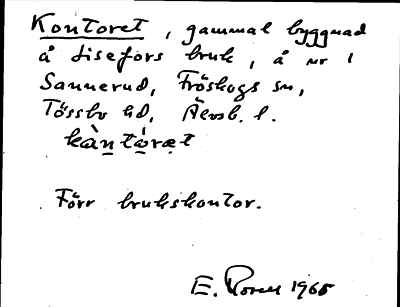 Kontoret, gammal byggnad
å Lisefors bruk, å nr 1
Sannerud, Fröskogs sn,
Tössbo hd, Älvsb. l.
kàntóræt
Förr brukskontor.
E. 1965